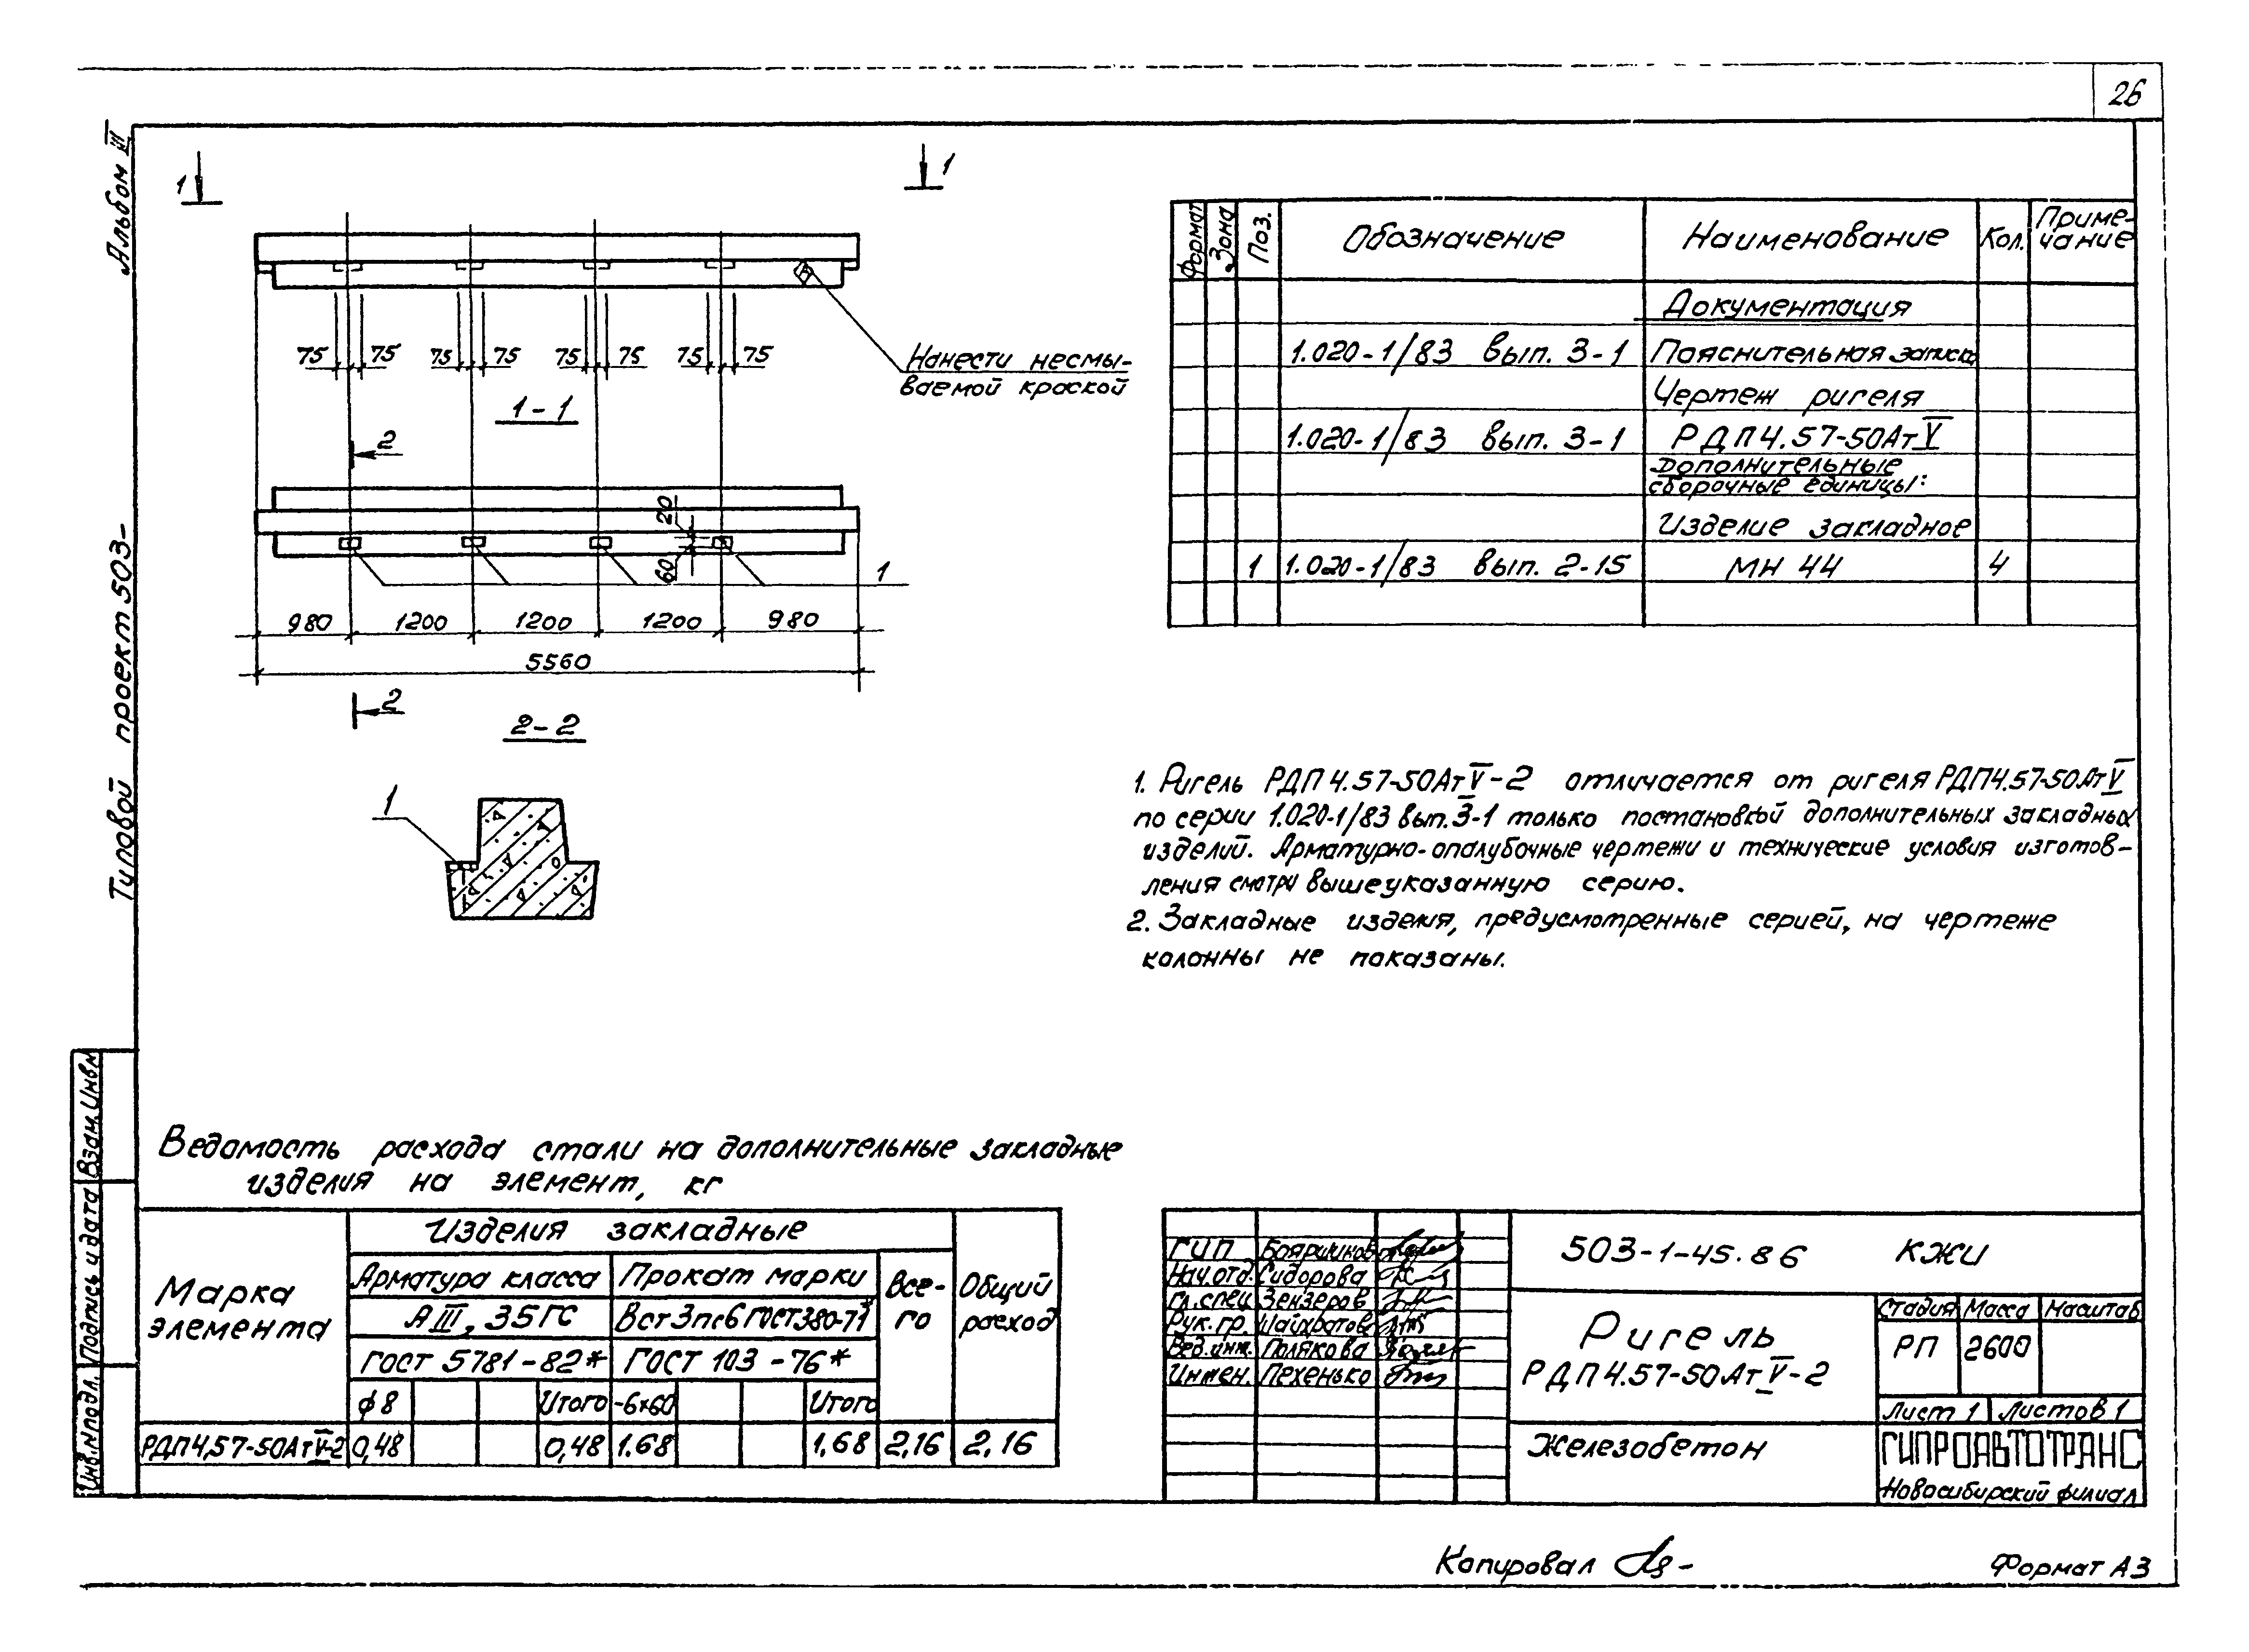 26
Альбом III
Типовой проект 503-
1 1
75 75 75 75 75 75 75 75
Нанести несмы-
ваемой краской
1-1
2
20
60
1
980 1200 1200 1200 980
5560
2
2-2
1
Формат Зона Поз. Обозначение Наименование Кол. Приме-
чание
Документация
1.020-1/83 вып. 3-1 Пояснительная записка
Чертеж ригеля
1.020-1/83 вып. 3-1 РДП4.57-50АтV
Дополнительные
сборочные единицы:
Изделие закладное
1 1.020-1/83 вып. 2-15 МН 44 4
1. Ригель РДП4.57-50АтV-2 отличается от ригеля РДП4.57-50АтV
по серии 1.020-1/83 вып.3-1 только постановкой дополнительных закладных
изделий. Арматурно-опалубочные чертежи и технические условия изготов-
ления смотри вышеуказанную серию.
2. Закладные изделия, предусмотренные серией, на чертеже
колонны не показаны.
Ведомость расхода стали на дополнительные закладные
изделия на элемент, кг
Марка
элемента
Изделия закладные
Арматура класса Прокат марки Все-
го
Общий
расход
АIII, 35ГС Вст3пс6 ГОСТ380-71*
ГОСТ 5781-82* ГОСТ 103-76*
ф8 Итого -6×60 Итого
РДП4,57-50АтV-2 0,48 0,48 1.68 1,68 2,16 2,16
ГИП Бояршинов
Нач.отд. Сидорова
Гл.спец. Зензеров
Рук.гр. Шайхратова
Вед.инж. Полякова
Инжен. Пехенько
503-1-45.86 КЖИ
Ригель
РДП4.57-50АтV-2
Стадия Масса Масштаб
РП 2600
Лист 1 Листов 1
Железобетон
ГИПРОАВТОТРАНС
Новосибирский филиал
Инв.Nподл. Подпись и дата Взам.Инв.N
Копировал
Формат А3